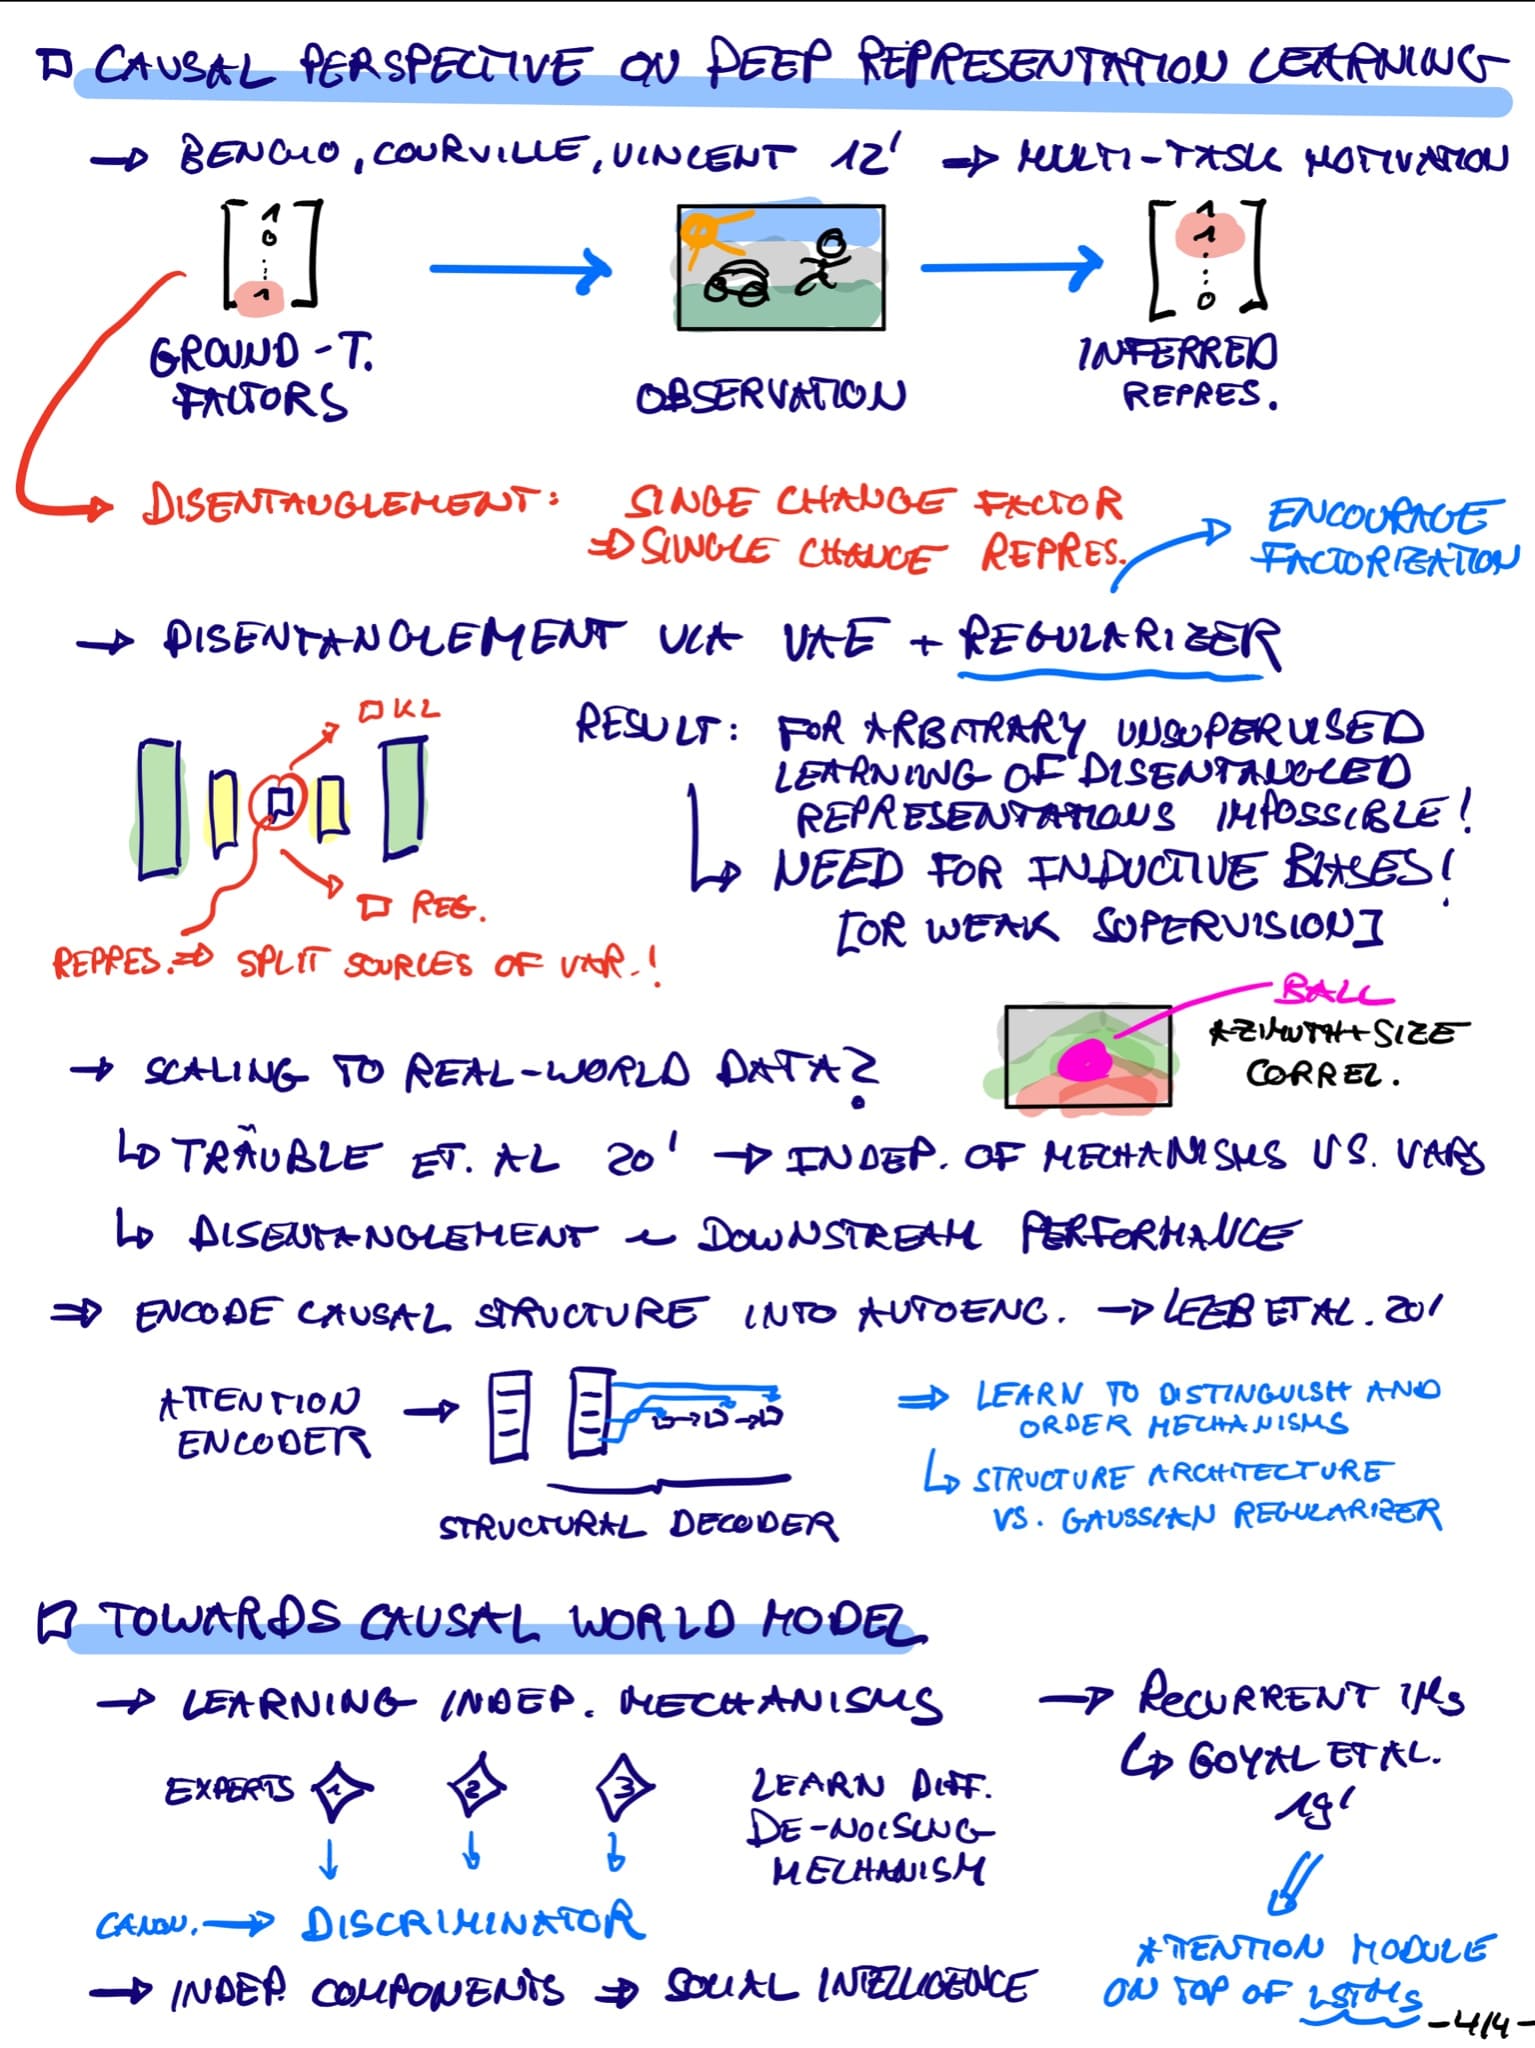 CAUSAL PERSPECTIVE ON DEEP REPRESENTATION LEARNING
→ BENGIO, COURVILLE, VINCENT 12' ⇒ MULTI-TASK MOTIVATION
1
0
⋮
1
1
1
⋮
0
GROUND-T.
FACTORS
OBSERVATION
INFERRED
REPRES.
DISENTANGLEMENT: SINGE CHANGE FACTOR
⇒ SINGLE CHANGE REPRES.
ENCOURAGE
FACTORIZATION
→ DISENTANGLEMENT VIA VAE + REGULARIZER
□ KL
□ REG.
REPRES. ⇒ SPLIT SOURCES OF VAR.!
RESULT: FOR ARBITRARY UNSUPERVISED
LEARNING OF DISENTANGLED
REPRESENTATIONS IMPOSSIBLE!
↳ NEED FOR INDUCTIVE BIASES!
[OR WEAK SUPERVISION]
BALL
AZIMUTH+SIZE
CORREL.
→ SCALING TO REAL-WORLD DATA?
↳ TRÄUBLE ET. AL 20' → INDEP. OF MECHANISMS VS. VARS
↳ DISENTANGLEMENT ~ DOWNSTREAM PERFORMANCE
⇒ ENCODE CAUSAL STRUCTURE INTO AUTOENC. → LEEB ET AL. 20'
ATTENTION
ENCODER →
STRUCTURAL DECODER
⇒ LEARN TO DISTINGUISH AND
ORDER MECHANISMS
↳ STRUCTURE ARCHITECTURE
VS. GAUSSIAN REGULARIZER
TOWARDS CAUSAL WORLD MODEL
→ LEARNING INDEP. MECHANISMS
EXPERTS 1 2 3
LEARN DIFF.
DE-NOISING
MECHANISM
CANON. → DISCRIMINATOR
→ INDEP. COMPONENTS ⇒ SOCIAL INTELLIGENCE
→ RECURRENT IMs
↳ GOYAL ET AL.
19'
ATTENTION MODULE
ON TOP OF LSTMs
-4/4-